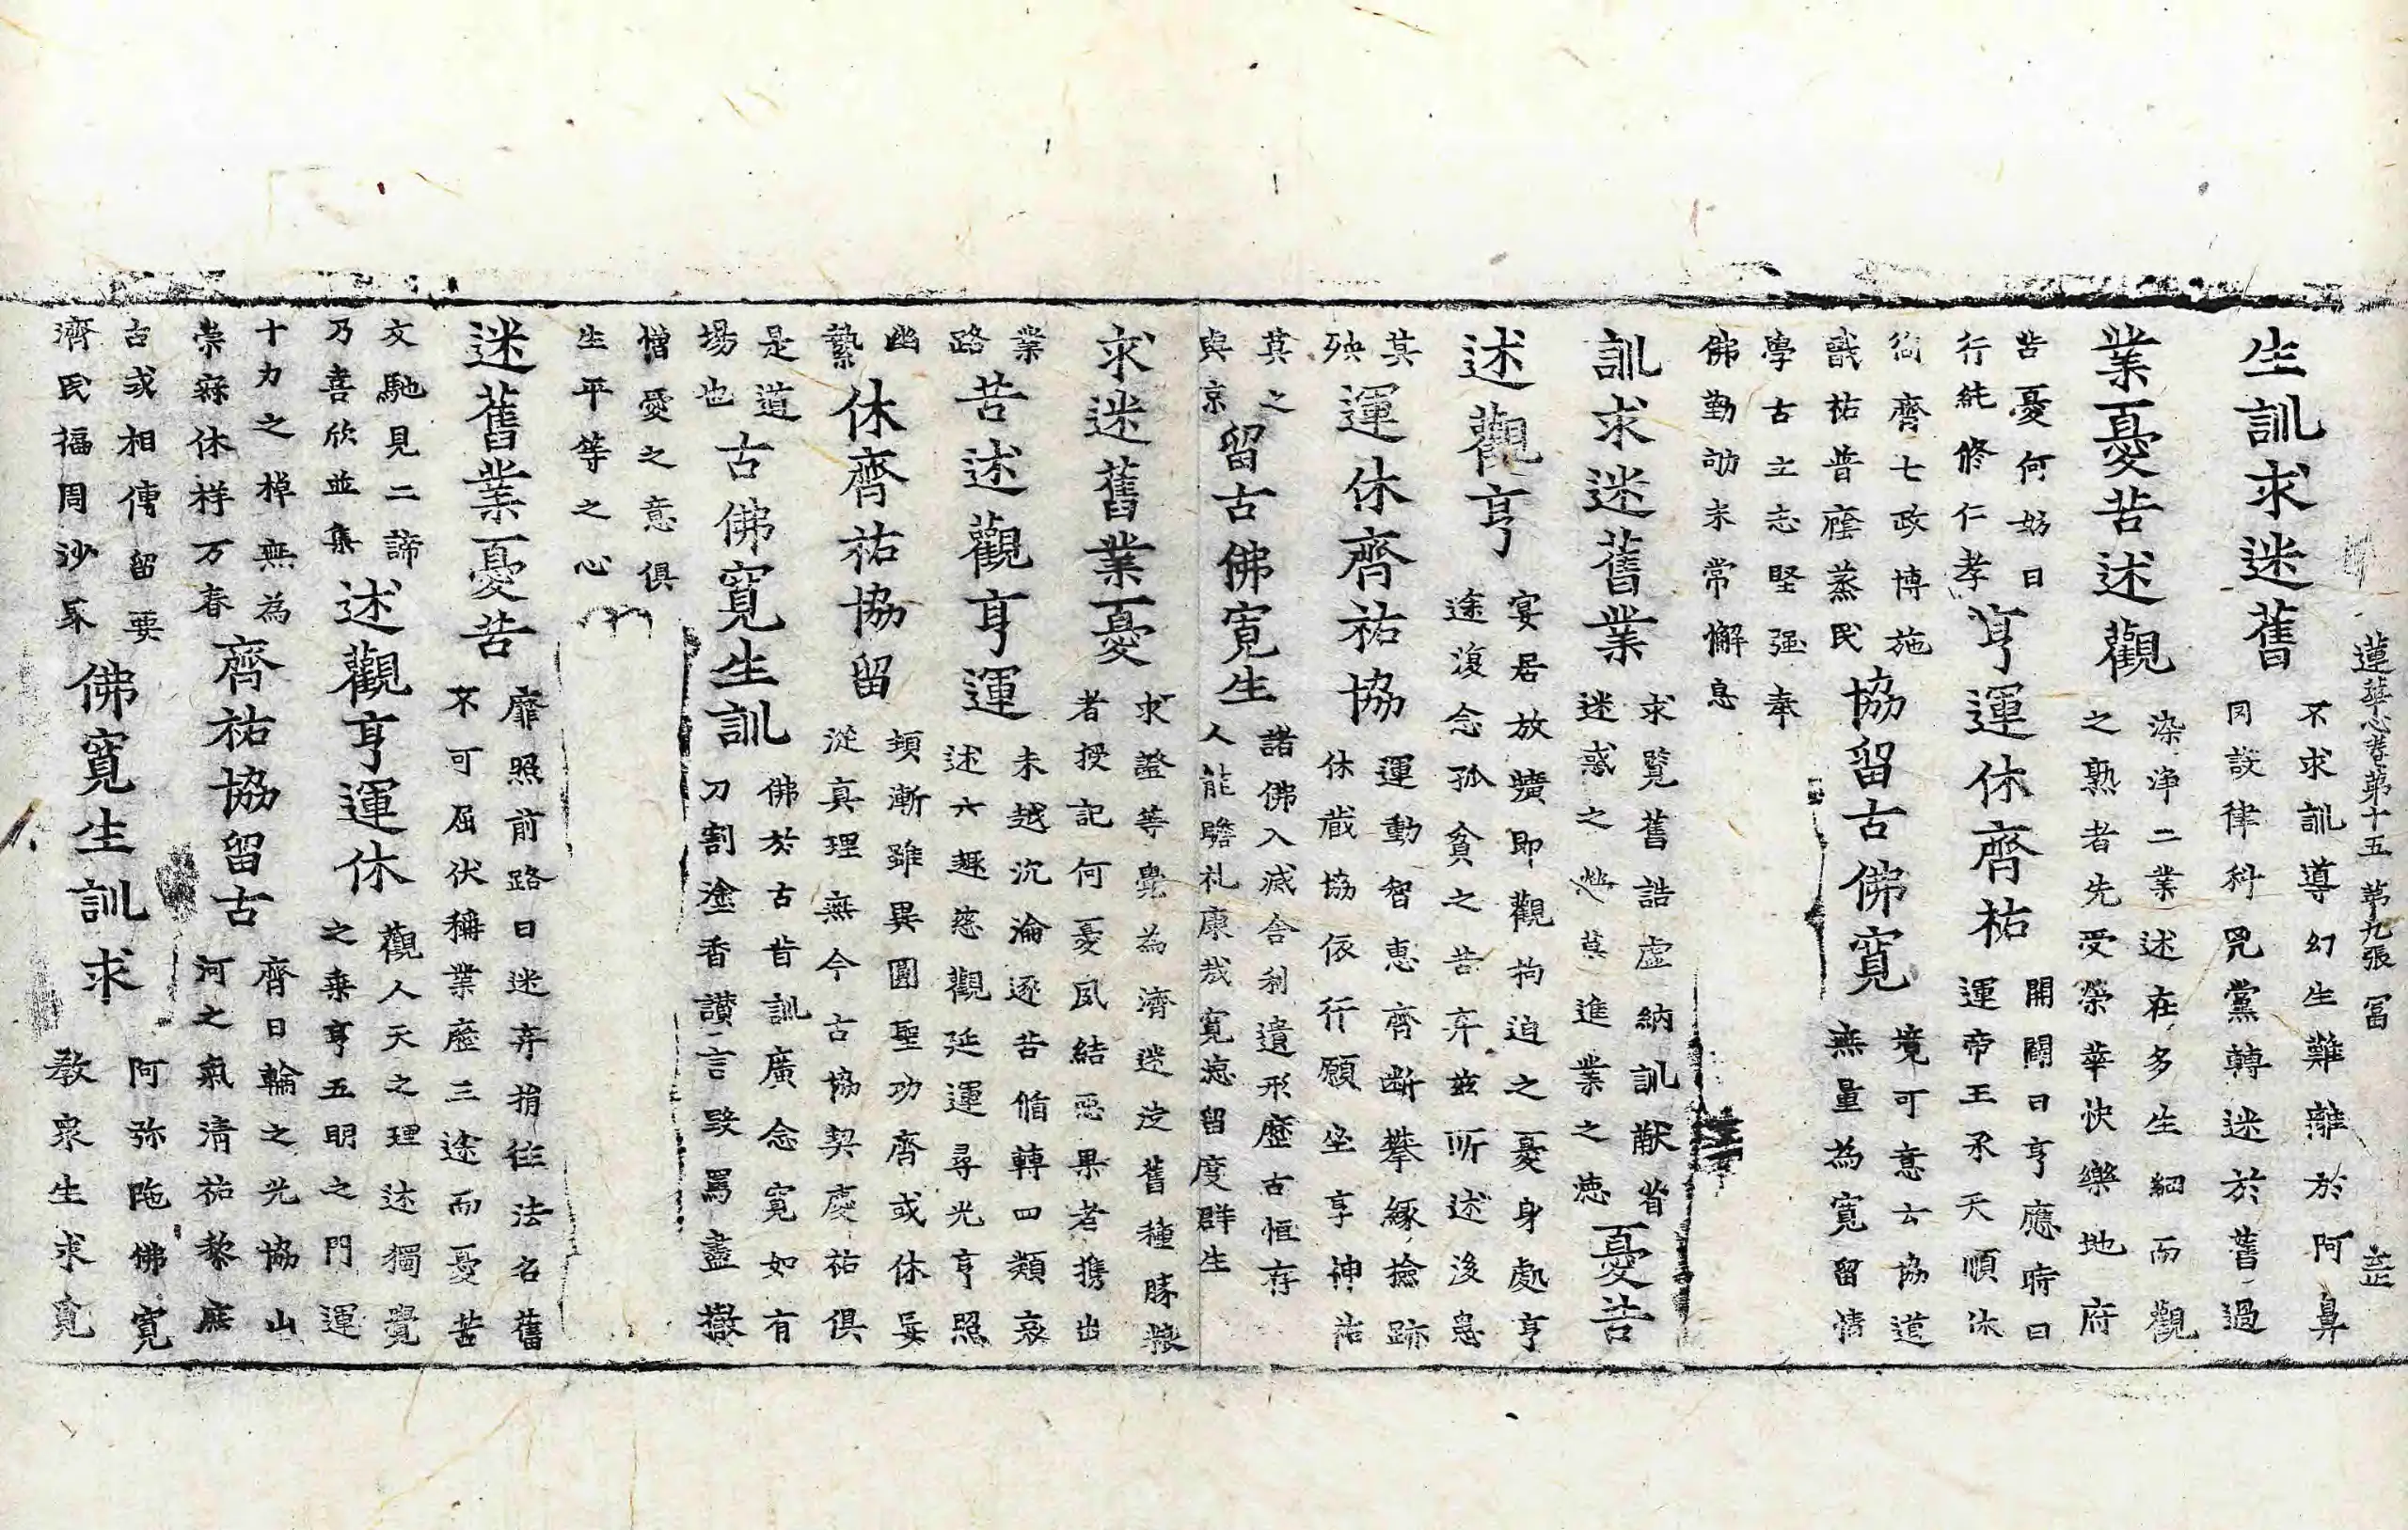 蓮華心 第十五 第九張 冨
生訓求迷舊
不求訓導幻生難離於阿鼻
罔設律科咒黨轉迷於舊過
業憂苦述觀
染淨二業述在多生細而觀
之熟者先受榮幸快樂地府
苦憂何妨日
行純修仁孝
亨運休齊祐
開闢曰亨應時曰
運帝王承天順休
徇齊七政博施
戩祐普廕蒸民
協留古佛寬
境可意云協道
無量為寬留情
學古立志堅强奉
佛勤劬未常懈息
訓求迷舊業
求覽舊誥虛納訓猷省
迷惑之 莫進業之德
憂苦
述觀亨
宴居放曠即觀拘迫之憂身處亨
途復念孤貧之苦弃兹所述後患
其
殃
運休齊祐協
運動智惠齊斷攀緣撿跡
休戢協依行願坐享神祐
其之
與京
留古佛寬生
諸佛入滅舍利遺形歷古恒存
人能瞻礼康哉寬惠留度群生
求迷舊業憂
求證等覺為濟迷 舊種勝
者授記何憂夙結惡果者携出
業
路
苦述觀亨運
未越沉淪逐苦脩轉四類哀
述六趣慈觀延運尋光亨照
幽
縶
休齊祐協留
頓漸雖異圓聖功齊或休妄
從真理無今古協契慶祐俱
是道
場也
古佛寬生訓
佛於古昔訓廣念寬如有
刀割塗香讃言毀罵盡撤
憎愛之意俱
生平等之心
迷舊業憂苦
靡照前路曰迷弃捐 法名舊
不可屈伏稱業歷三途而憂苦
文馳見二諦
乃喜欣並集
述觀亨運休
觀人天之理述獨覺
之乗亨五明之門運
十力之棹無為
崇寐休祥万春
齊祐協留古
齊日輪之光協山
河之氣清祐黎庶
古或相傳留要
濟民福周沙界
佛寬生訓求
阿弥陁佛寬
教衆生求寬